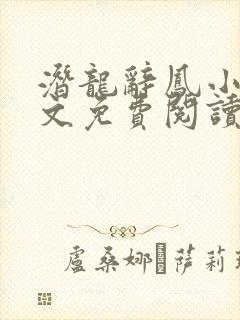 潛龍辭鳳小
文免費閱讀
盧桑娜·萨莉